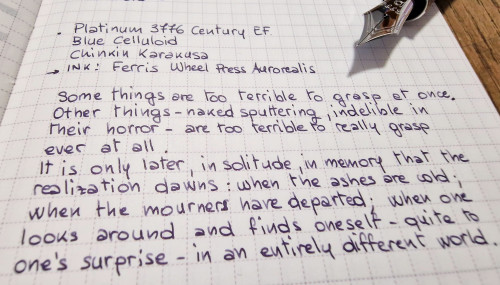 • Platinum 3776 Century EF
Blue Celluloid
Chinkin Karakusa
→ INK: Ferris Wheel Press Aurorealis
Some things are too terrible to grasp at once.
Other things - naked sputtering, indelible in
their horror - are too terrible to really grasp
ever at all.
It is only later, in solitude, in memory that the
realization dawns: when the ashes are cold;
when the mourners have departed; when one
looks around and finds oneself - quite to
one's surprise - in an entirely different world.